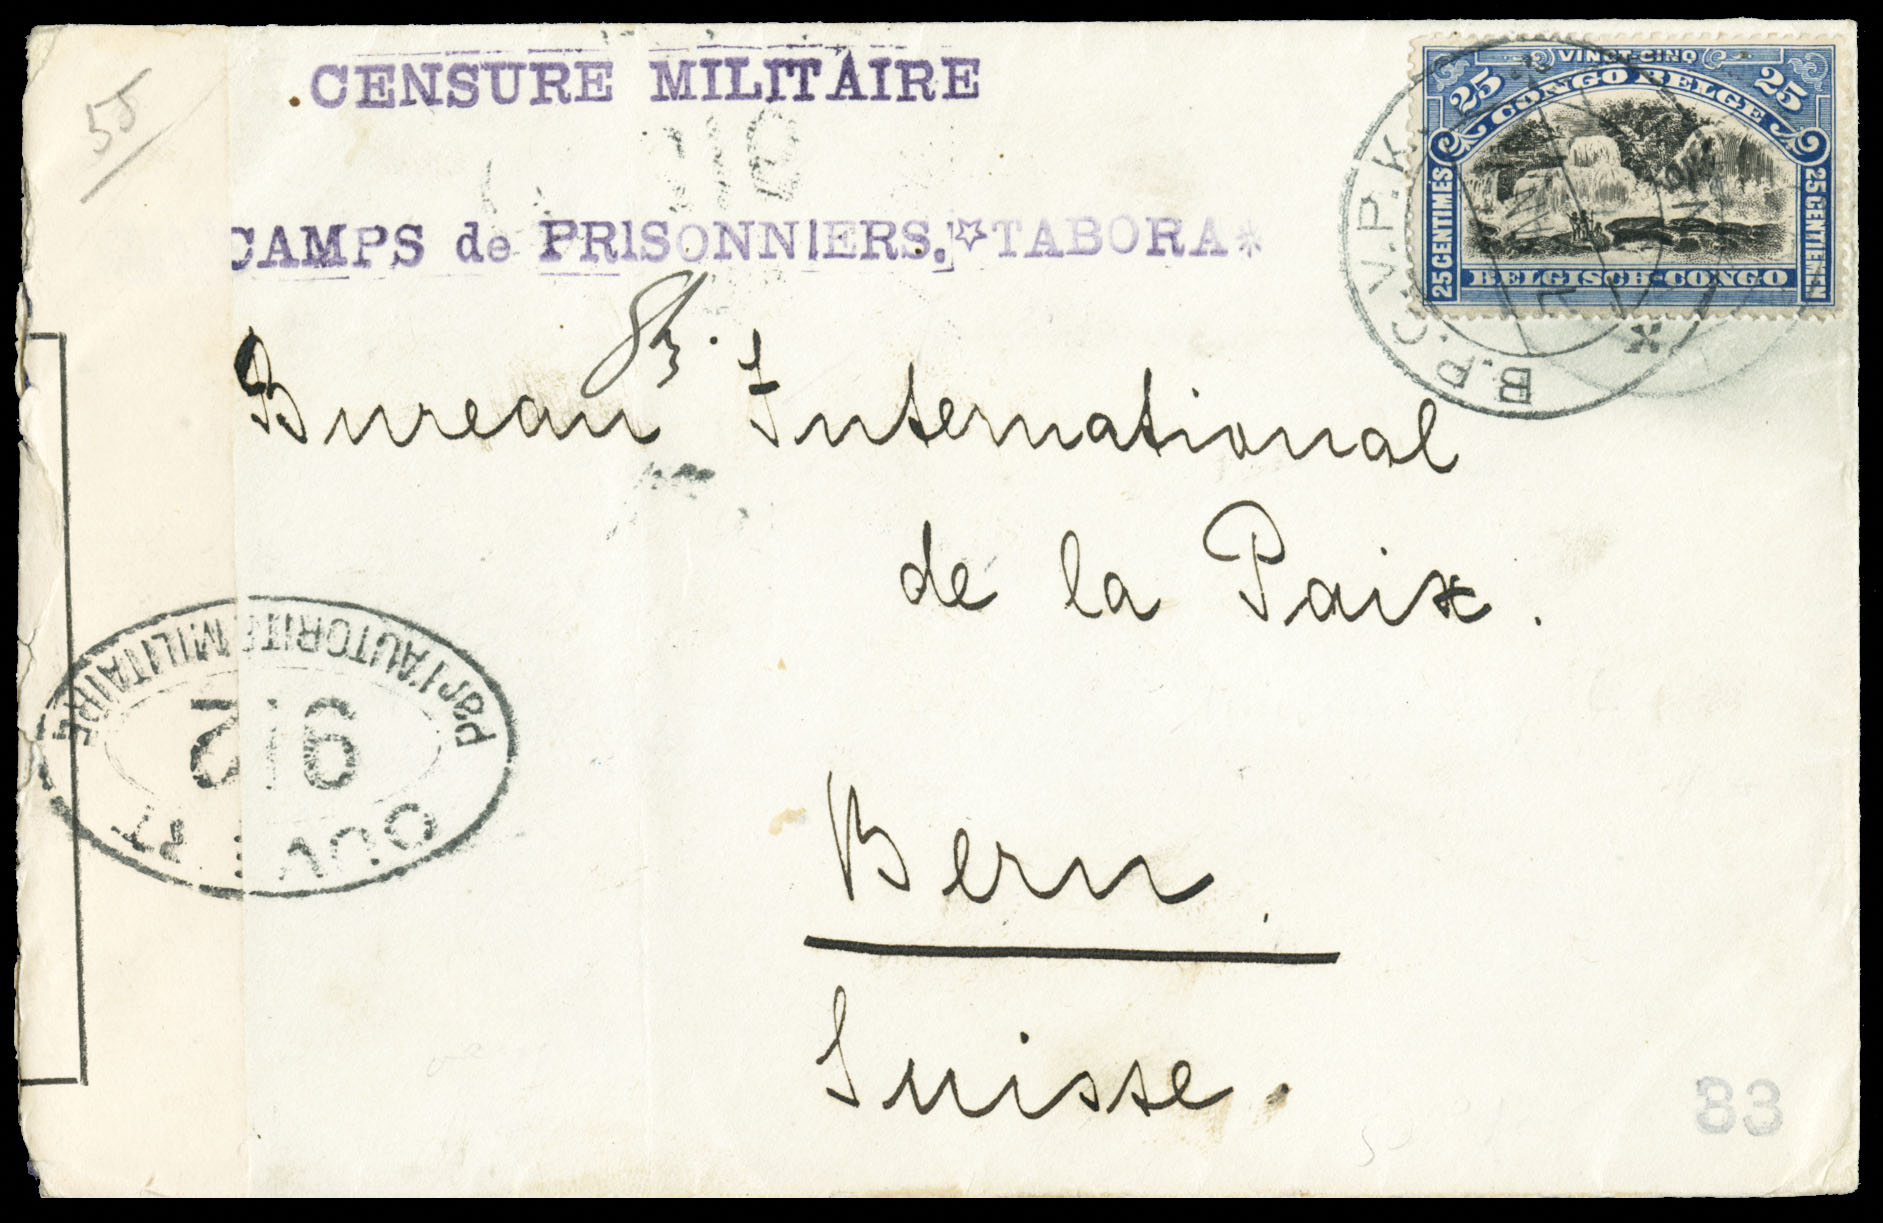 55
CENSURE MILITAIRE
CAMPS de PRISONNIERS.☆TABORA*
VINGT-CINQ
25 CONGO BELGE 25
25 CENTIMES
25 CENTIEMEN
BELGISCH-CONGO
B.P.C.V.P.K.
Bureau International
de la Paix.
Bern
Suisse.
OUVERT
216
Par l'AUTORITE MILITAIRE
216
33